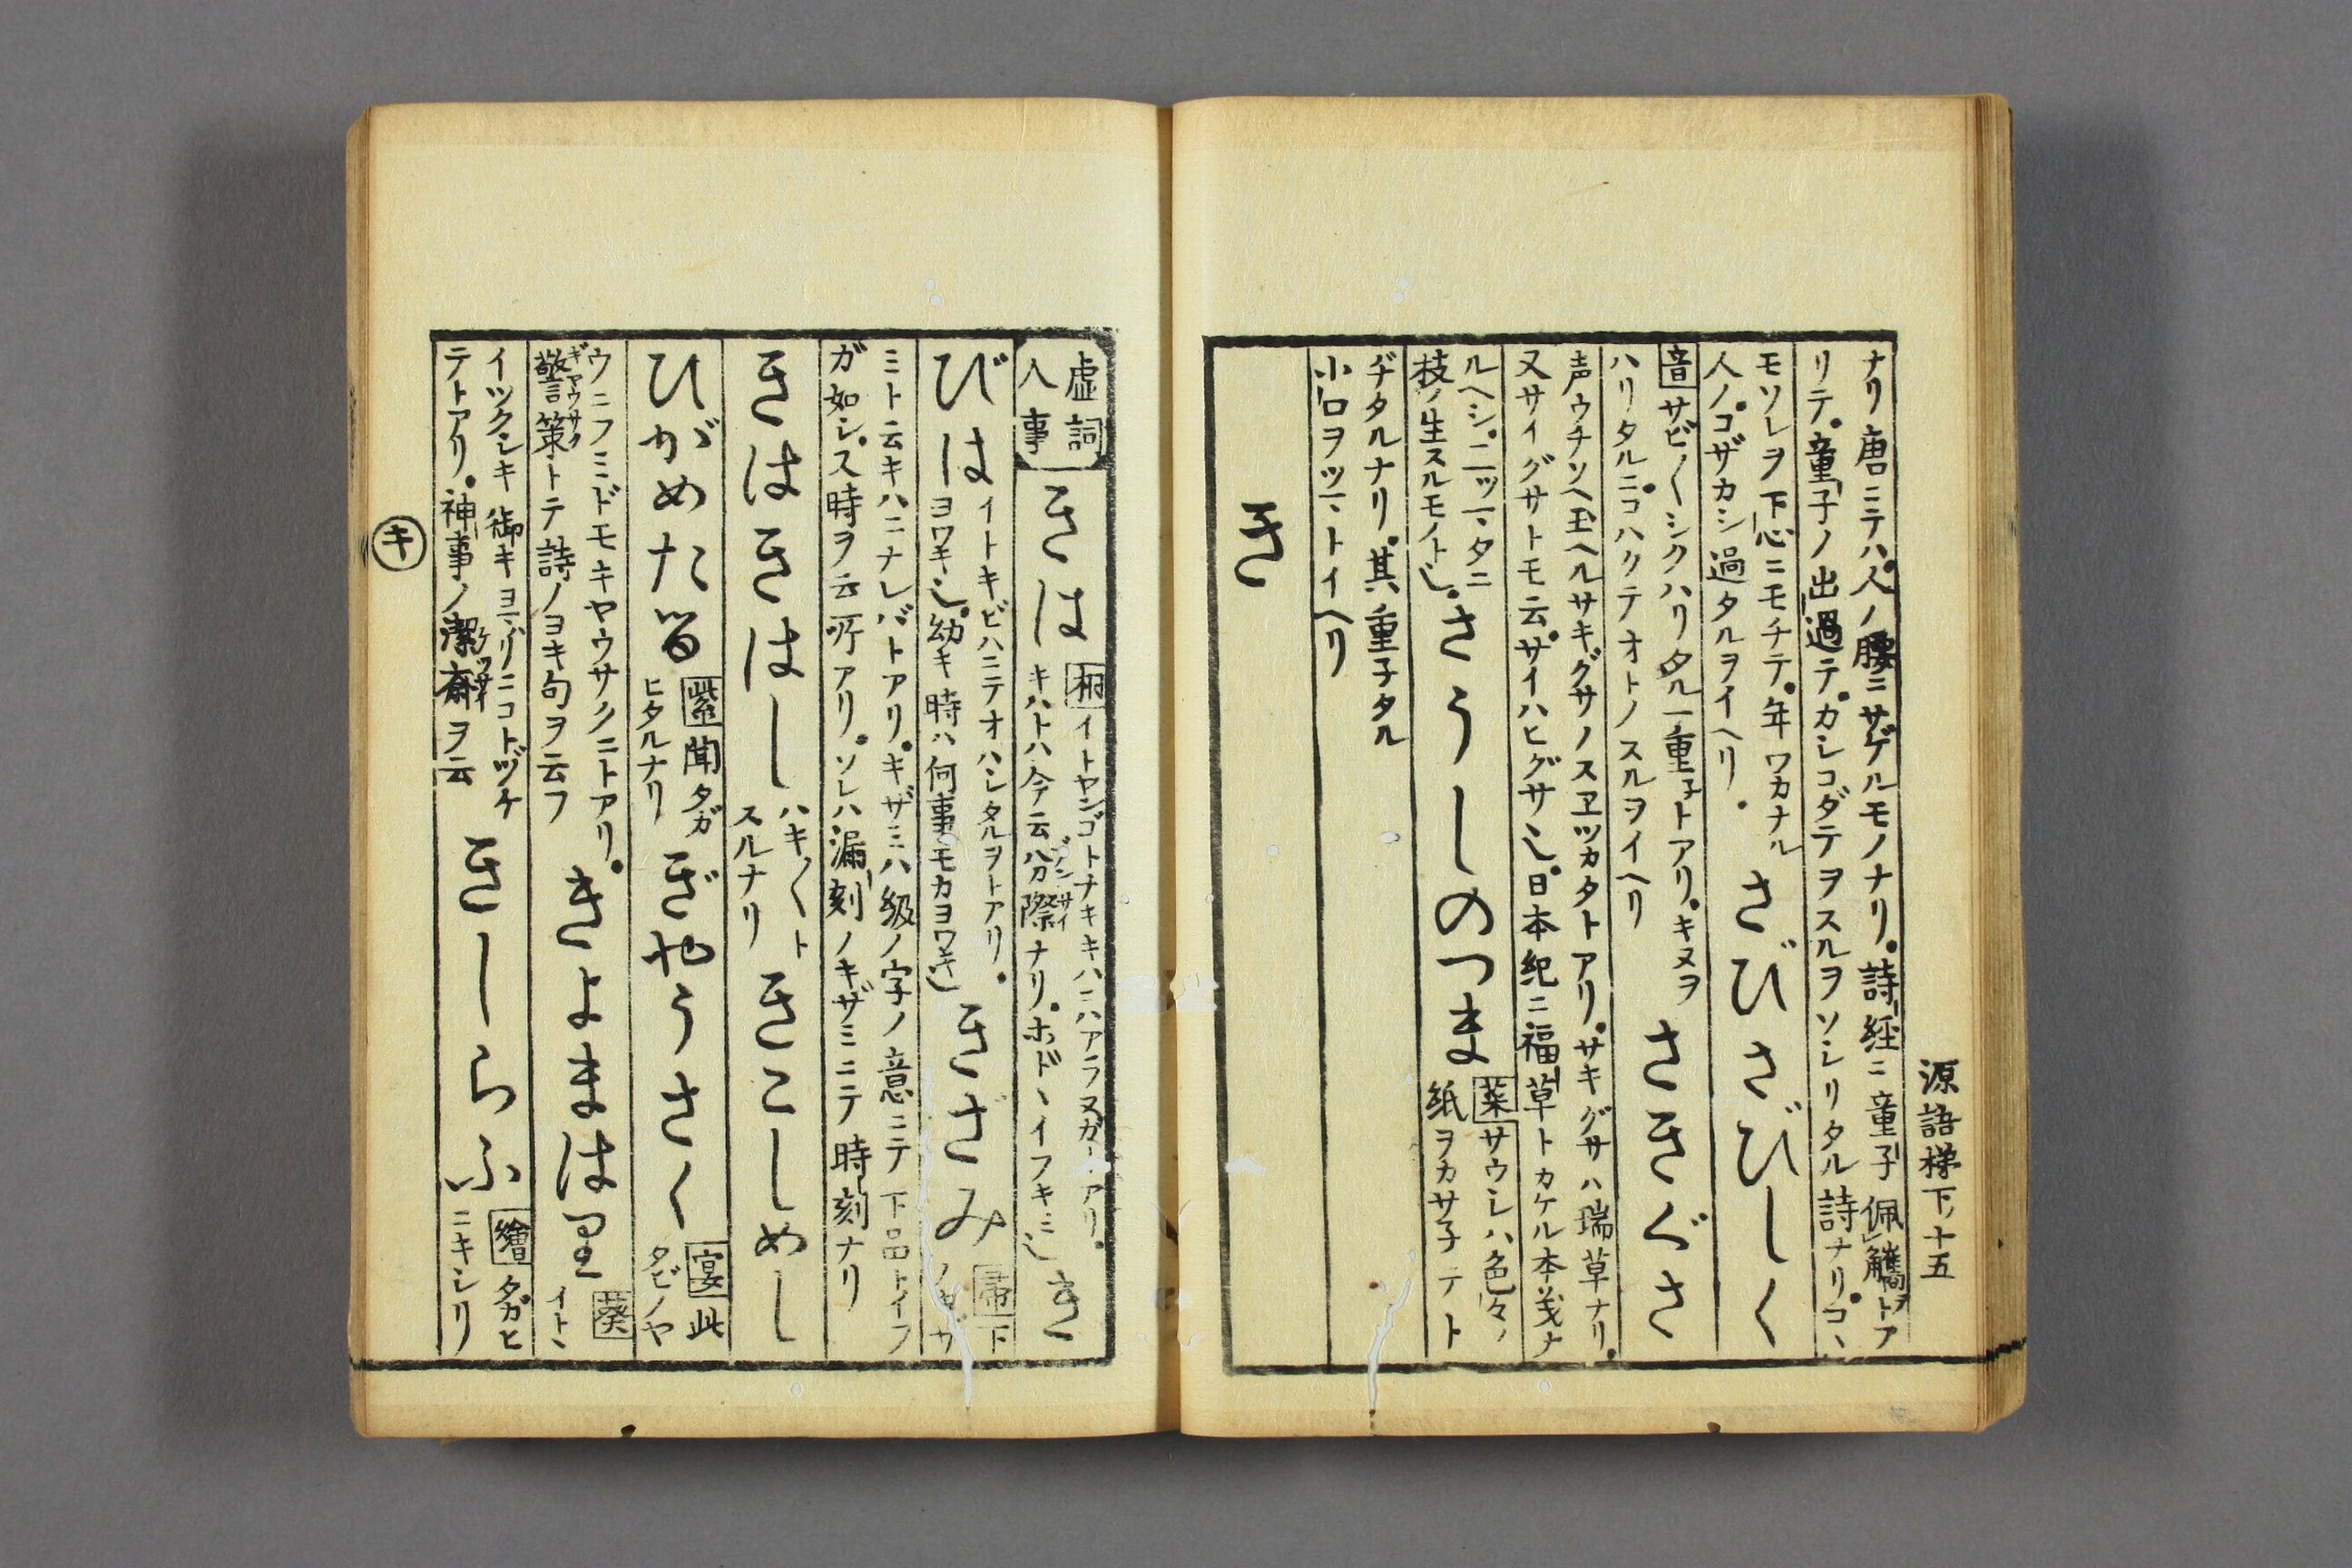 源語梯下ノ十五
ナリ唐ニテハ人ノ腰ニサゲルモノナリ。詩経ニ童子佩觿トア
リテ。童子ノ出過テ。カシコダテヲスルヲソシリタル詩ナリ。コヽ
モソレヲ下心ニモチテ。年ワカナル
人ノ。コザカシ過タルヲイヘリ。
さびさびしく
音サビ〳〵シクハリタル一重子トアリ。キヌヲ
ハリタルニ。コハクテオトノスルヲイヘリ
さきぐさ
声ウチソヘ玉ヘルサキグサノスヱツカタトアリ。サキグサハ瑞草ナリ。
又サイグサトモ云。サイハヒグサ也。日本紀ニ福草トカケル本義ナ
ルヘシ。二ッ一ヽタニ
枝ノ生スルモノト也。
さうしのつま
葉サウシハ色々ノ
紙ヲカサ子テト
ヂタルナリ。其重子タル
小口ヲツマトイヘリ
き
虚詞
人事
きは
桐イトヤンゴトナキキハニハアラヌガトアリ。
キハトハ今云分際ブンサイナリ。ホドヽイフキミ也
きびは
イトキビハニテオハシタルヲトアリ。
ヨワキ也。幼キ時ハ何事モカヨワキ也
きざみ
帚下ノキザ
ミト云キハニナレバトアリ。キザミハ級ノ字ノ意ニテ下品トイフ
ガ如シ。ス時ヲ云所アリ。ソレハ漏刻ノキザミニテ時刻ナリ
きはきはし
ハキ〳〵ト
スルナリ
きこしめし
ひがめたる
紫聞タガ
ヒタルナリ
ぎやうさく
宴此
タビノヤ
ウニフミドモキヤウサクニトアリ。
警策ギヤウサクトテ詩ノヨキ句ヲ云フ
きよまはる
葵
イトヽ
イツクシキ御キヨマハリニコトヅケ
テトアリ。神事ノ潔斎ケツサイヲ云
きしらふ
繪タガヒ
ニキシリ
キ